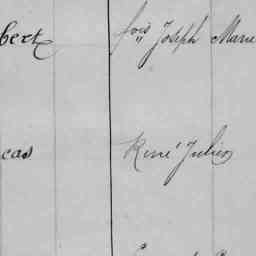 bert fois Joseph Marie
cas René Julien